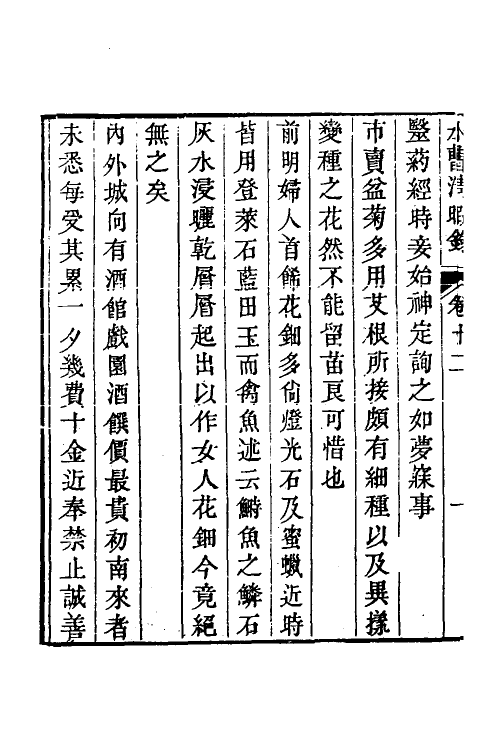 水曹清暇錄 卷十二 一
毉葯經時妾始神定詢之如夢寐事
市賣盆菊多用艾根所接頗有細種以及異㨾
變種之花然不能留苗良可惜也
前明婦人首餙花鈿多尙燈光石及蜜蠟近時
皆用登萊石藍田玉而禽魚述云鰣魚之鱗石
灰水浸曬乾層層起出以作女人花鈿今竟絕
無之矣
內外城向有酒館戲園酒饌價最貴初南來者
未悉每受其累一夕幾費十金近奉禁止誠善